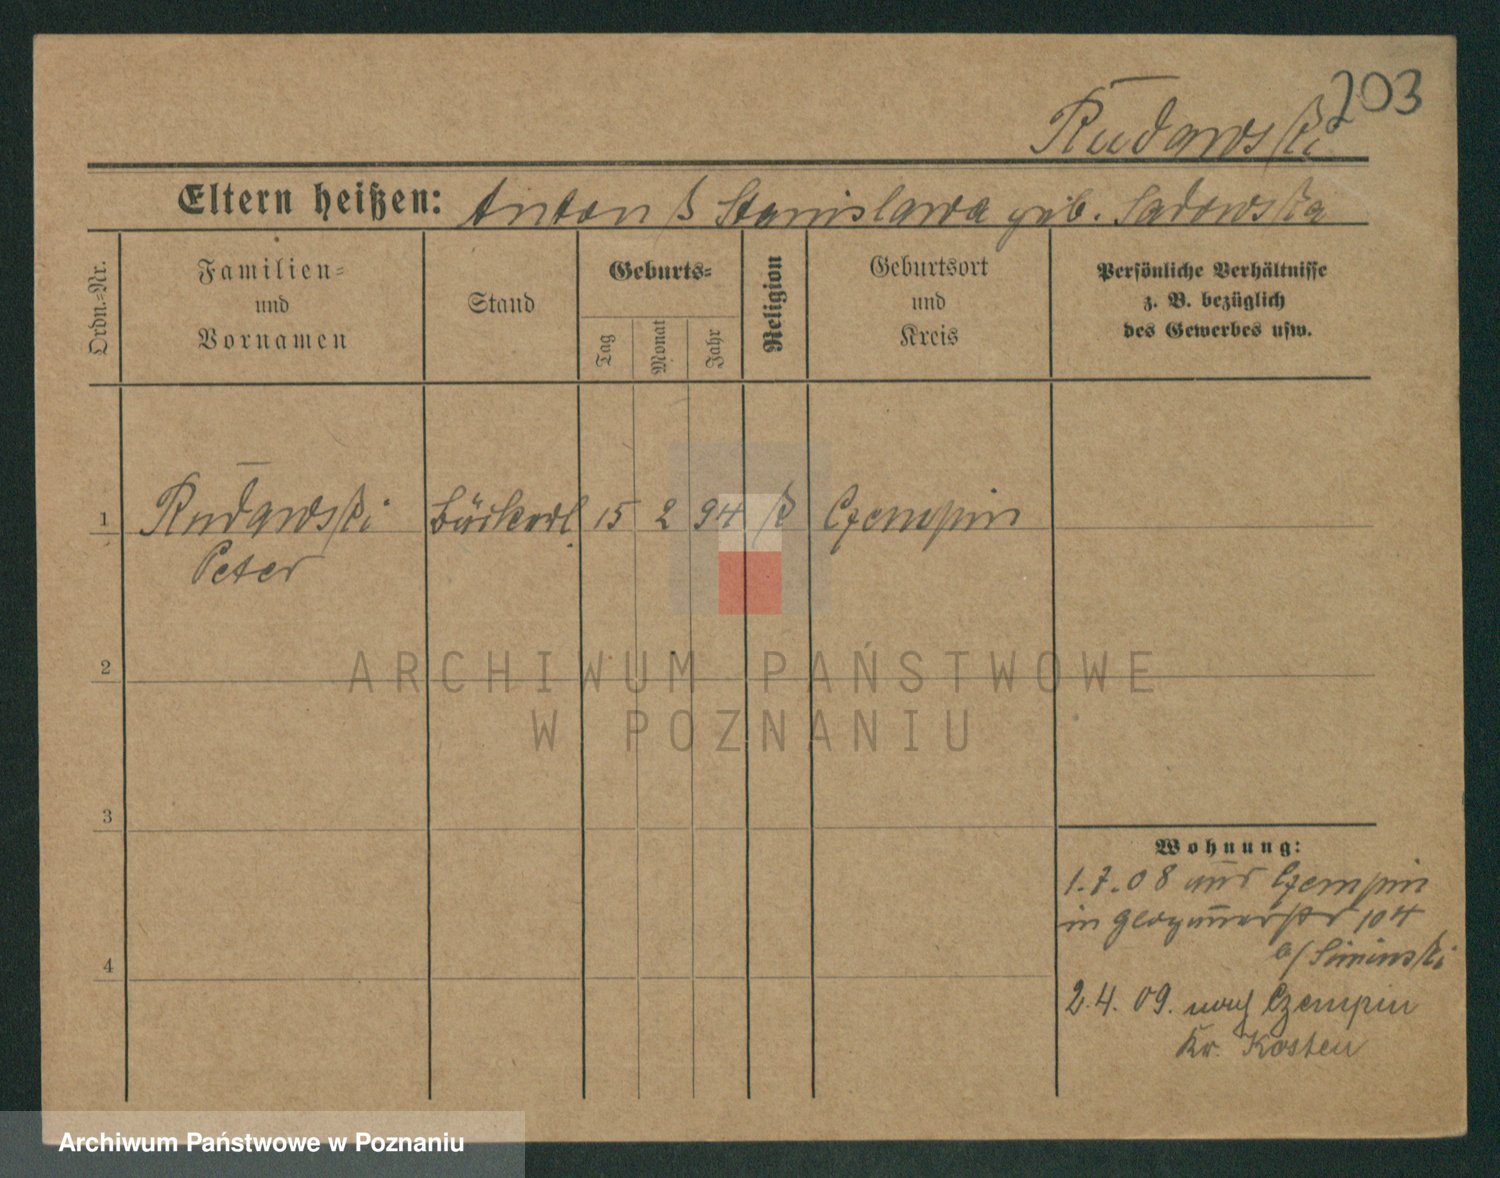 203
Rudawski
Eltern heißen: Anton & Stanislawa geb. Sadowska
Ordn.=Nr.
Familien=
und
Vornamen
Stand
Geburts=
Tag
Monat
Jahr
Religion
Geburtsort
und
Kreis
Persönliche Verhältnisse
z. B. bezüglich
des Gewerbes usw.
1 Rudawski Bäckerl. 15 2 94 k Czempin
Peter
ARCHIWUM PAŃSTWOWE
W POZNANIU
2
3
4
Wohnung:
1.7.08 aus Czempin
in 104
b/ Siminski
2.4.09. nach Czempin
Kr. Kosten
Archiwum Państwowe w Poznaniu